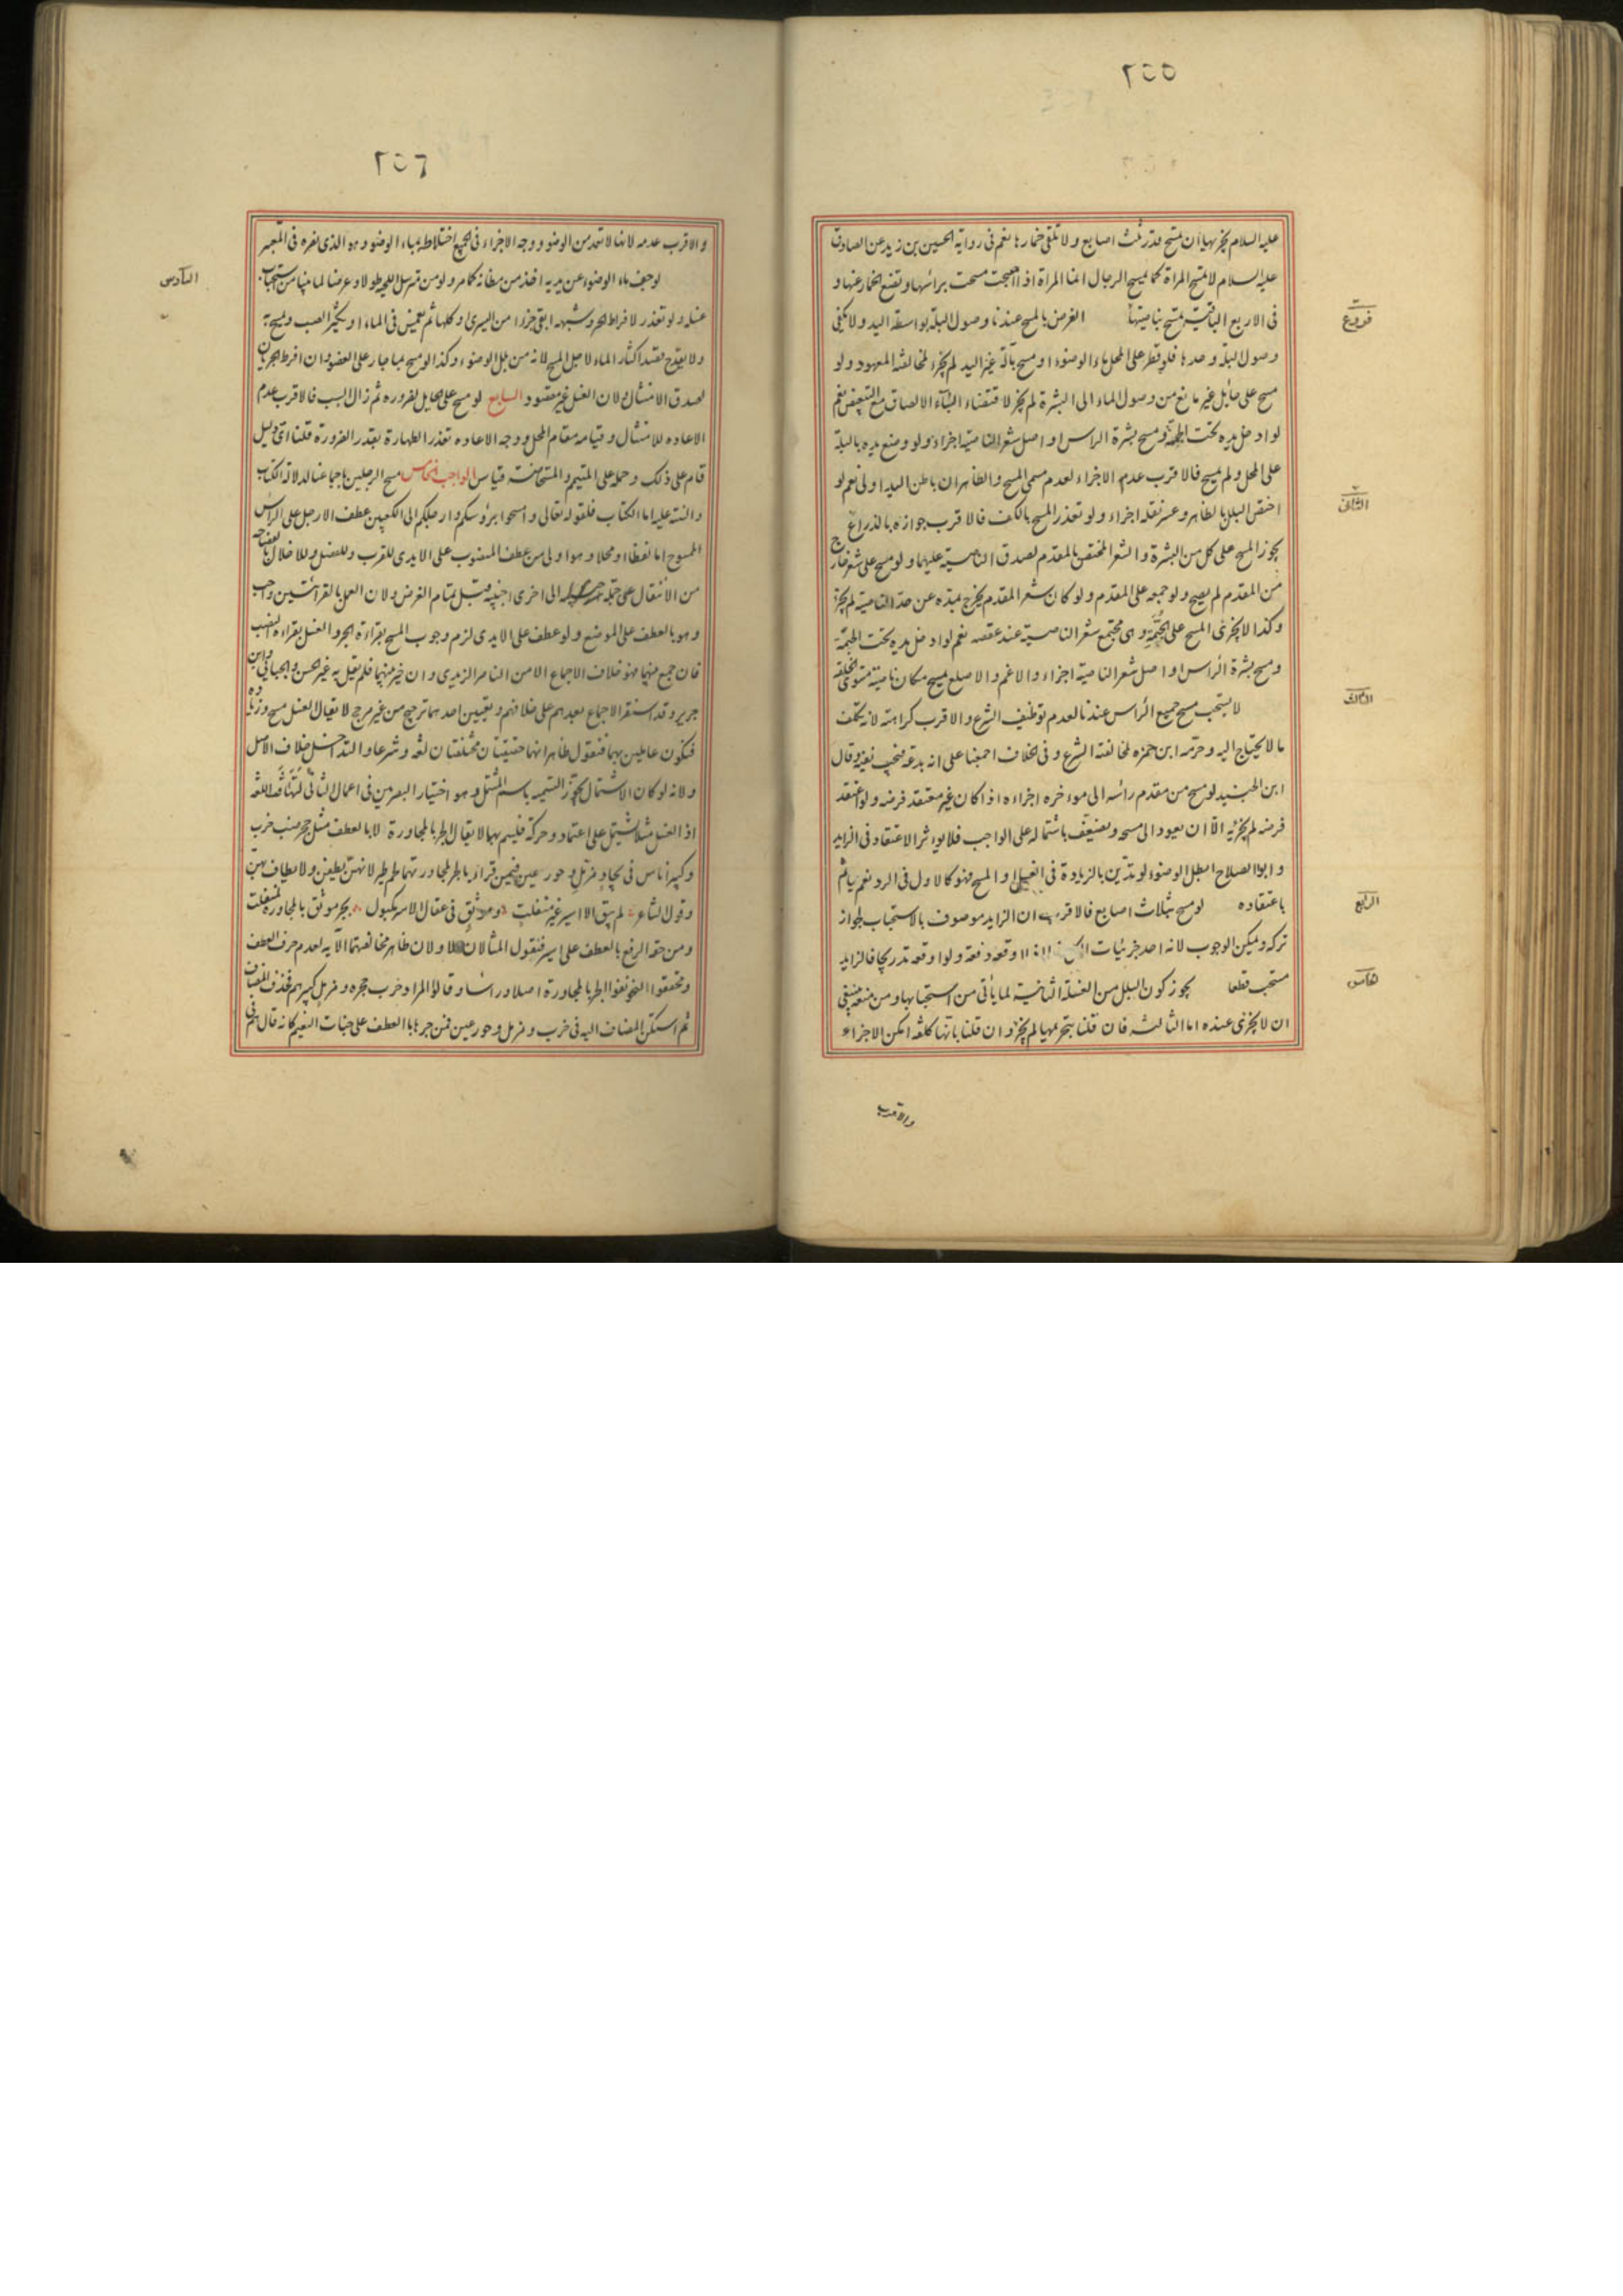 ٢٥٥
عليه السلام يجزيها ان تمسح قدر ثلث اصابع ولا تلقى خمارها نعم فى رواية الحسين بن زيد عن الصادق
عليه السلام لا تمسح المراة كما يمسح الرجال انما المراة اذا اصبحت مسحت براسها وتضع الخمار عنها و
فى الاربع الباقية تمسح بناصيتها الفرض بالمسح عندنا وصول البلة بواسطة اليد ولا يكفى
فروع
وصول البلة وحدها فلو قطر على المحل ماء الوضوء او مسح بآلة غير اليد لم يجز لمخالفته المعهود ولو
مسح على حايل غير مانع من وصول الماء الى البشرة لم يجز لاقتضاء الباء الالصاق مع التبعيض نعم
لو ادخل يده تحت الجمة ومسح بشرة الراس او اصل شعر الناصية اجزاء ولو وضع يده بالبلة
على المحل ولم يمسح فالاقرب عدم الاجزاء لعدم مسمى المسح والظاهر ان باطن اليد اولى نعم لو
اختص البلل بالظاهر وعسر نقله اجزاء ولو تعذر المسح بالكف فالاقرب جوازه بالذراع
الثانى
يجوز المسح على كل من البشرة والشعر المختص بالمقدم لصدق الناصية عليهما ولو مسح على شعر خارج
من المقدم لم يصح ولو جمعه على المقدم ولو كان شعر المقدم يخرج بمده عن حد الناصية لم يجز
وكذا لا يجزى المسح على الجمة وهى مجتمع شعر الناصية عند عقصه نعم لو ادخل يده تحت الجمة
ومسح بشرة الراس او اصل شعر الناصية اجزاء والاغم والاصلع يمسح مكان ناصية مستوى الخلقة
الثالث
لا يستحب مسح جميع الراس عندنا لعدم توظيف الشرع والاقرب كراهته لانه تكلف
ما لا يحتاج اليه وحرمه ابن حمزه لمخالفته الشرع وفى الخلاف اجمعنا على انه بدعة فيجب نفيه وقال
ابن الجنيد لو مسح من مقدم رأسه الى موءخره اجزاءه اذا كان غير معتقد فرضه ولو اعتقد
فرضه لم يجزئه الا ان يعود الى مسحه ويضعف باشتماله على الواجب فلا يوءثر الاعتقاد فى الزايد
وابو الصلاح ابطل الوضوء لو تدين بالزيادة فى الغسل او المسح فهو كالاول فى الرد نعم ياثم
باعتقاده لو مسح بثلاث اصابع فالاقرب ان الزايد موصوف بالاستحباب لجواز
الرابع
تركه ويمكن الوجوب لانه احد جزئيات اوقعه دفعة ولو اوقعه تدريجا فالزايد
مستحب قطعا يجوز كون البلل من الغسلة الثانية لما ياتى من استحبابها ومن منعه ينبغى
خامس
ان لا يجزى عنده اما الثالثه فان قلنا بتحريمها لم يجز وان قلنا بانها كلفه امكن الاجزاء
والاقرب
٢٥٦
والاقرب عدمه لانها لا تعد من الوضوء ووجه الاجزاء فى الجميع اختلاطه بماء الوضوء وهو الذى نصره فى المعتبر
السادس
لو جف ماء الوضوء عن يديه اخذ من مظانه كما مر ولو من مسترسل اللحية طولا وعرضا لما بينا من استحباب
غسله ولو تعذر لافراط الحر وشبهه ابقى جزءا من اليسرى او كلها ثم تغمس فى الماء او يكثر الصب ويمسح به
ولا يقدح قصد اكثار الماء لاجل المسح لانه من بلل الوضوء وكذا لو مسح بما جار على العضو وان افرط الجريان
لصدق الامتثال ولان الغسل غير مقصود السابع لو مسح على حايل لضروره ثم زال السبب فالاقرب عدم
الاعاده للامتثال وقيامه مقام المحل ووجه الاعاده تعذر الطهارة بقدر الضرورة قلنا اى دليل
قام على ذلك وحمله على المتيمم والمستحاضة قياس الواجب الخامس مسح الرجلين باجماعنا لدلالة الكتاب
والسنه عليه اما الكتاب فلقوله تعالى وامسحوا برؤسكم وارجلكم الى الكعبين عطف الارجل على الراس
الممسوح اما لفظا او محلا وهو اولى من عطف المنصوب على الايدى للقرب وللفصل وللاخلال بالفصاحة
من الانتقال على جملة الى اخرى اجنبية قبل تمام الغرض ولان العمل بالقرائتين واجب
وهو بالعطف على الموضع ولو عطف على الايدى لزم وجوب المسح بقراءة الجر والغسل بقراءة النصب
فان جمع بينهما فهو خلاف الاجماع الا من الناصر الزيدى وان خير بينهما فلم يقل به غير الحسن والجبائى وابن
جرير وقد استقر الاجماع بعدهم على خلافهم وتعيين احدهما ترجيح من غير مرجح لا يقال الغسل مسح وزياده
فنكون عاملين بهما فنقول ظاهر انهما حقيقتان مختلفتان لغة وشرعا والتداخل خلاف الاصل
ولانه لو كان الاشتمال يجوز التسمية باسم المشتمل وهو اختيار البصريين فى اعمال الثانى
اذا الغسل مثلا يشتمل على اعتماد وحركة فليسم بهما لا يقال الجر بالمجاورة لا بالعطف مثل جحر ضب خرب
وكبير اناس فى بجاد مزمل وحور عين فيمن قراء بالجر لمجاورتهما لحم طير لانهن يطفن ولا يطاف بهن
وقول الشاعر لم يبق الا اسير غير منفلت وموثق فى عقال الاسر مكبول بجر موثق بالمجاورة لمنفلت
ومن حقه الرفع بالعطف على اسير فنقول المثالان الاولان ظاهر مخالفتهما الآية لعدم حرف العطف
ومحققوا النحو نفوا الجر بالمجاورة اصلا وراسا وقالوا المراد خرب جحره ومزمل كبيرهم فحذف المضاف
ثم استكن المضاف اليه فى خرب ومزمل وحور عين فمن جرها بالعطف على جنات النعيم كانه قال هم فى